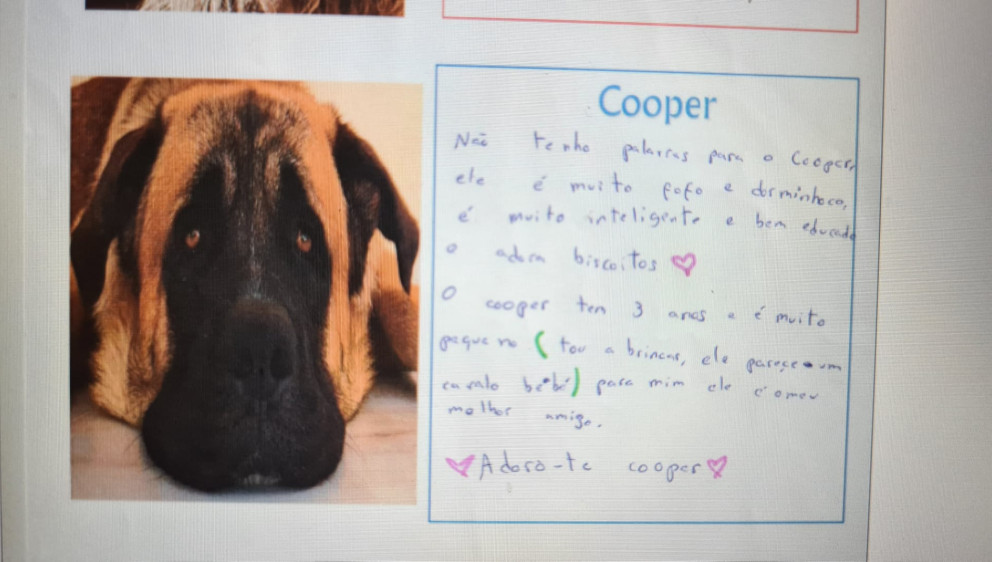 Cooper
Não tenho palavras para o Cooper,
ele é muito fofo e dorminhoco,
é muito inteligente e bem educado
e adora biscoitos
O cooper tem 3 anos e é muito
pequeno (tou a brincar, ele parece um
cavalo bebé) para mim ele é o meu
melhor amigo.
Adoro-te cooper